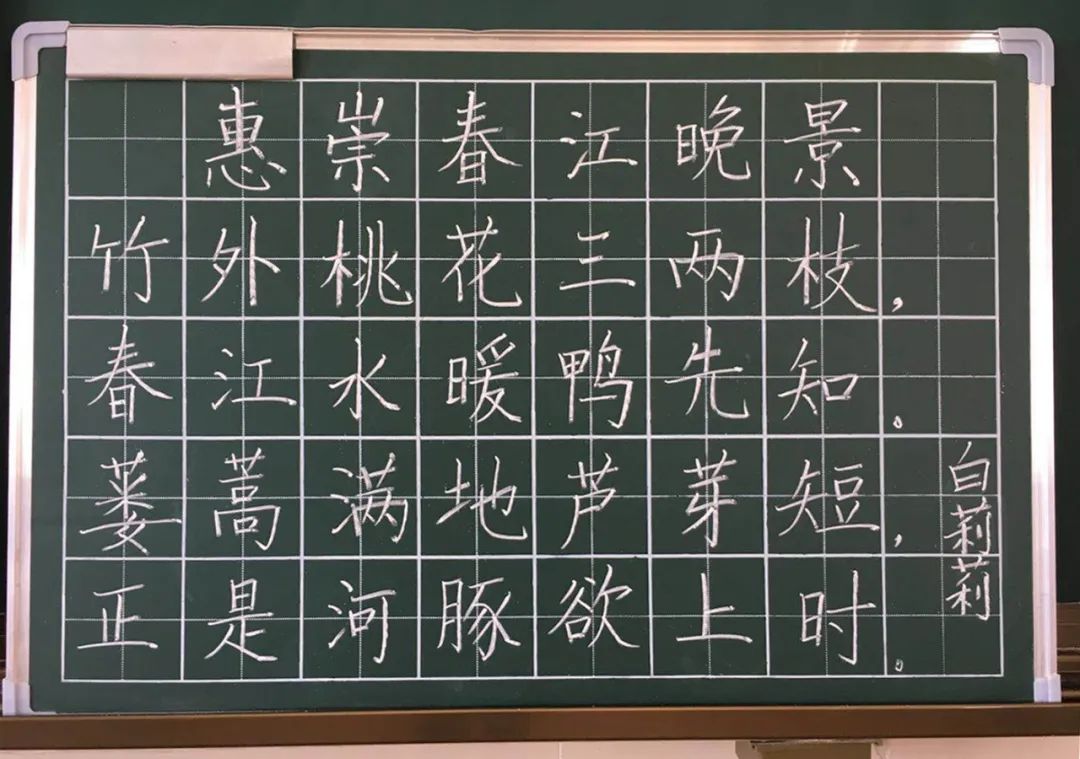 惠崇春江晚景
竹外桃花三两枝，
春江水暖鸭先知。
蒌蒿满地芦芽短，
正是河豚欲上时。
白莉莉